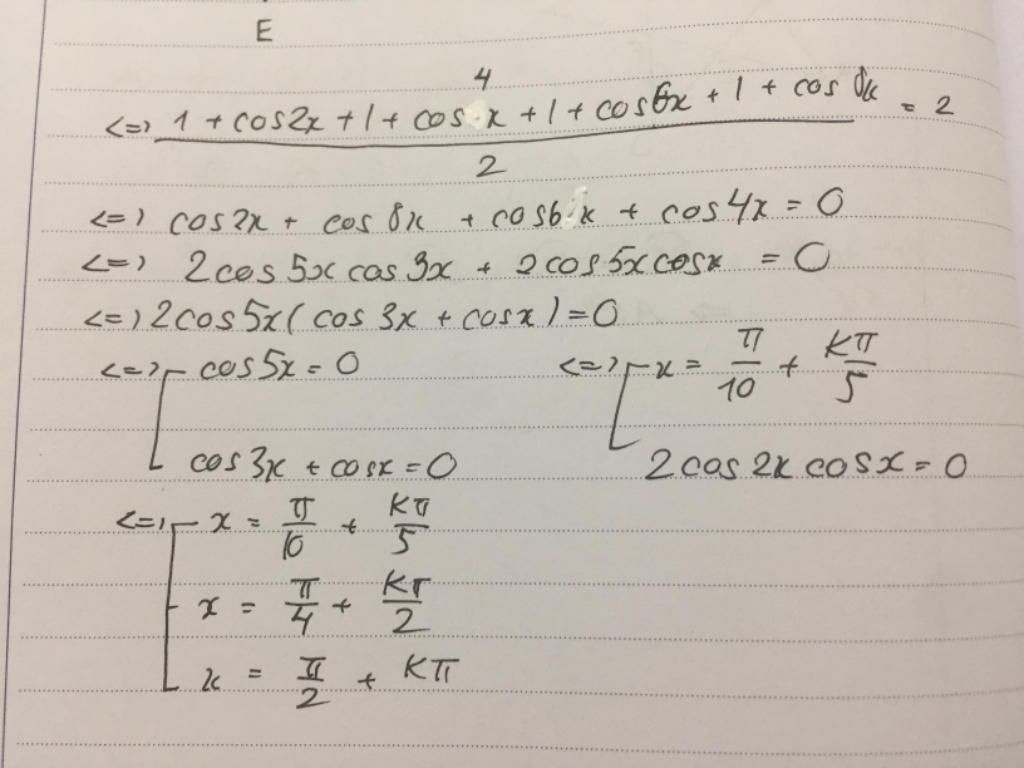 E
<=> (1 + cos2x + 1 + cos4x + 1 + cos6x + 1 + cos8x)/2 = 2
<=> cos2x + cos8x + cos6x + cos4x = 0
<=> 2cos5x cos3x + 2cos5x cosx = 0
<=> 2cos5x(cos3x + cosx) = 0
<=> [ cos5x = 0 <=> [ x = π/10 + Kπ/5
cos3x + cosx = 0 2cos2x cosx = 0
<=> [ x = π/10 + Kπ/5
x = π/4 + Kπ/2
x = π/2 + Kπ